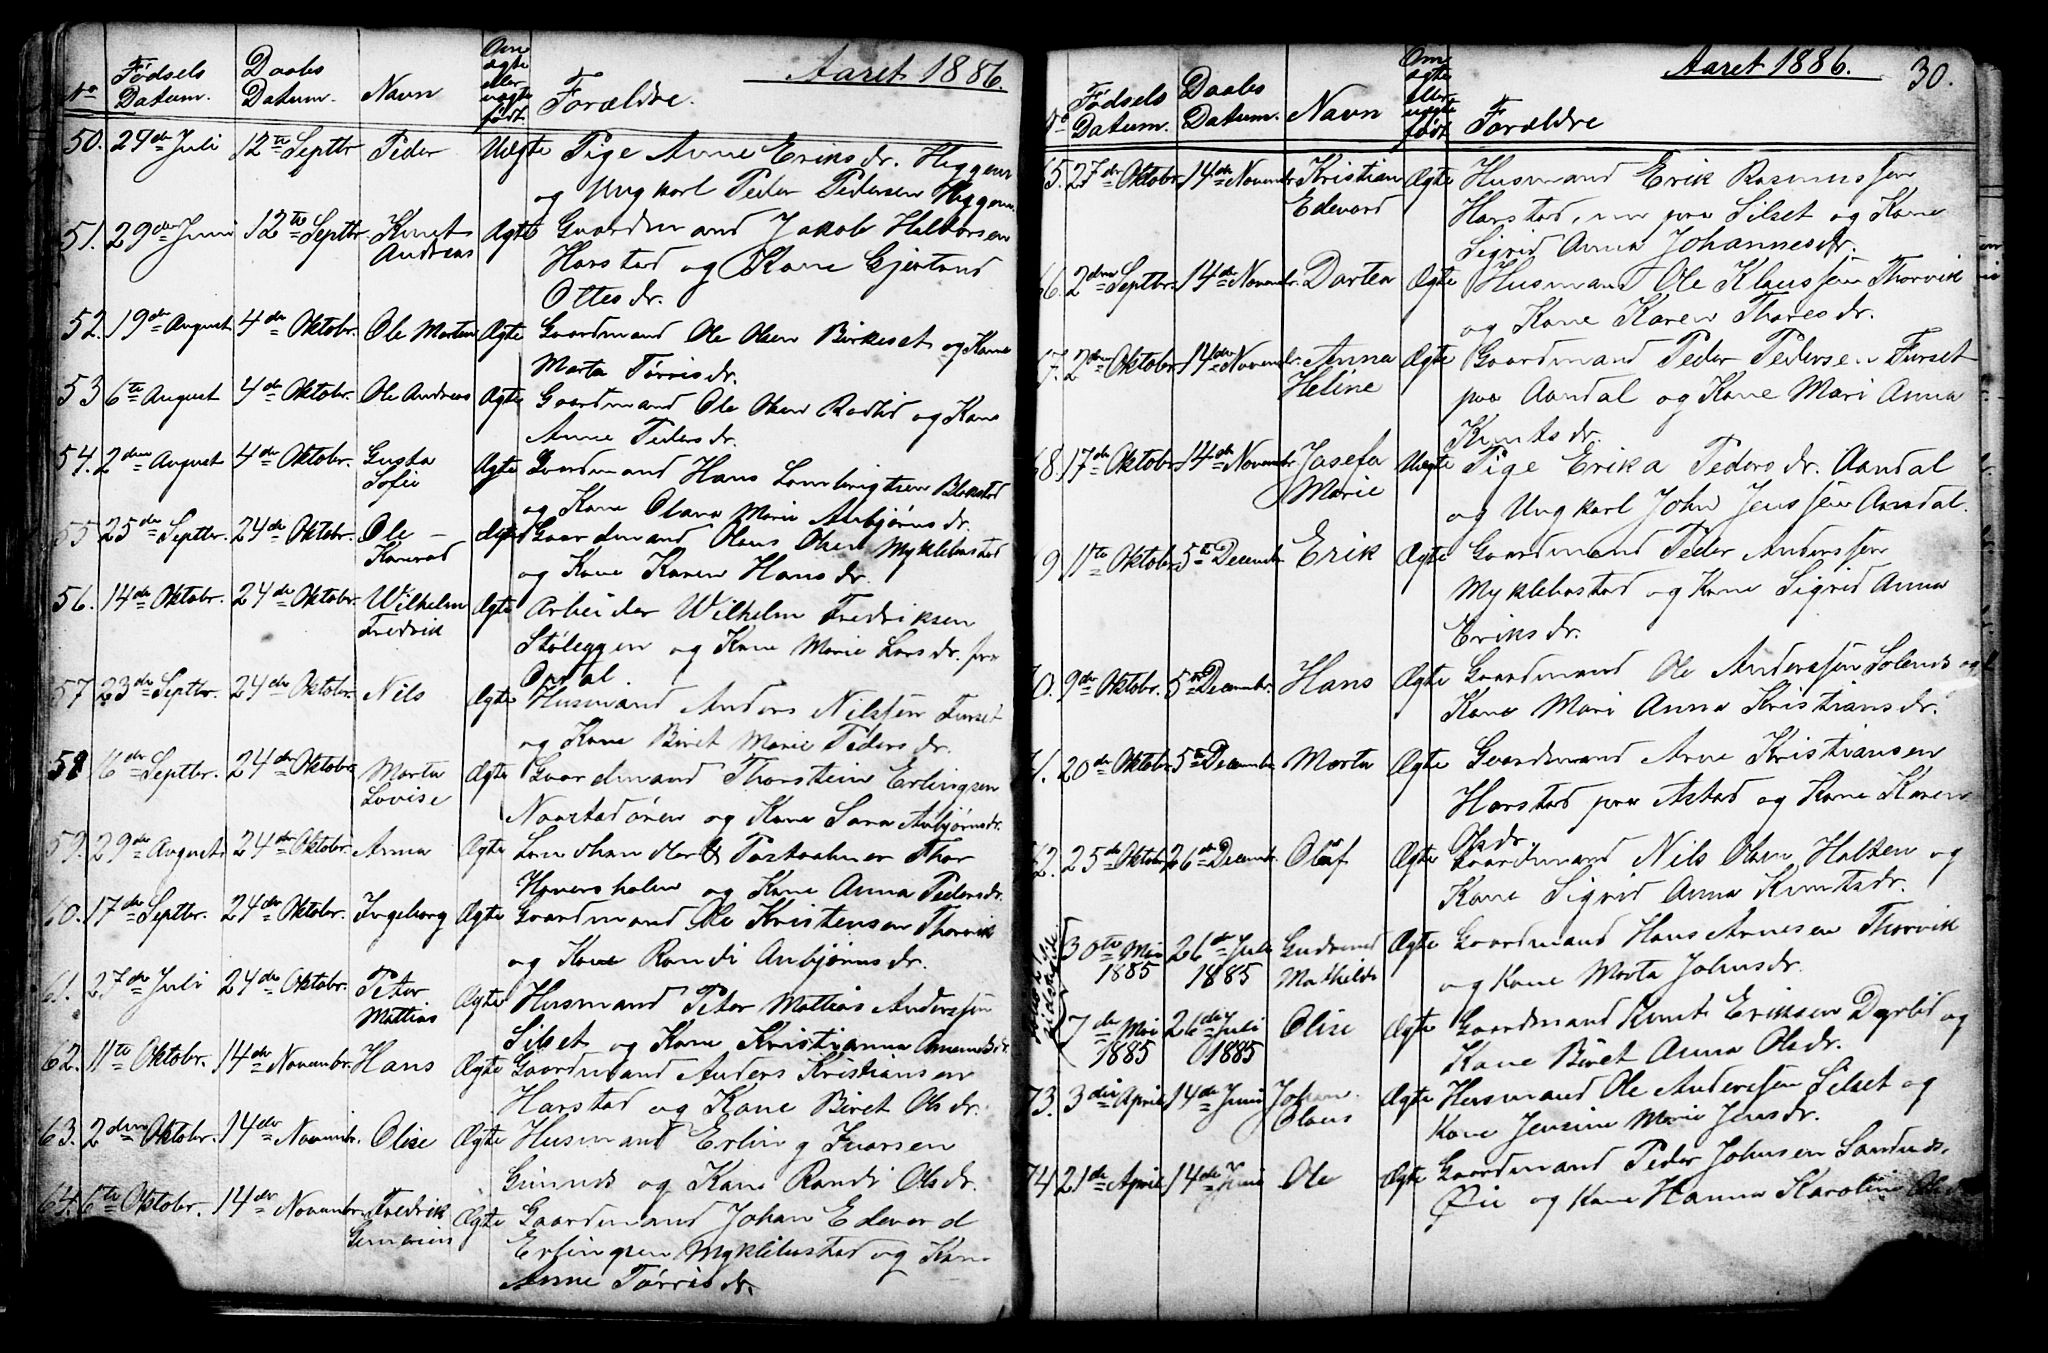 Aaret 1886.
No
Fødsels Datum.
Daabs Datum.
Navn
Om ægte eller uægte født.
Forældre.
50. 29de Juli 12te Septbr Peder Uægte Pige Anne Eriksdr. Heggem
og Ungkarl Peder Pedersen Heggem.
51. 29de Juni 12te Septbr. Knut Ægte Gaardmand Jakob Halvorsen
Andreas Harstad og Kone Gjertrud
Ottesdr.
52. 19de August 4de Oktobr. Ole Martin Ægte Gaardmand Ole Olsen Birkeset og Kone
Marta Tørrisdr.
53 6te August 4de Oktobr. Ole Andreas Ægte Gaardmand Ole Olsen Rødlid og Kone
Anne Pedersdr.
54. 2den August 4de Oktobr. Gusta Ægte Gaardmand Hans Lambrigtsen Blakstad
Sofie og Kone Olava Marie Anbjørnsdr.
55 25de Septbr. 24de Oktobr. Ole Ægte Gaardmand Olaus Olsen Myklebostad
Konrad og Kone Karen Hansdr.
56. 14de Oktobr. 24de Oktobr. Wilhelm Ægte Arbeider Wilhelm Fredriksen
Fredrik Støleggen og Kone Marie Larsdr. fra
57 23de Septbr. 24de Oktobr. Nils Ægte Husmand Anders Nilssen Furset
og Kone Beret Marie Pedersdr.
58 16de Septbr. 24de Oktobr. Marta Ægte Gaardmand Thorstein Erlingsen
Lovise Naastadøren og Kone Sara Anbjørnsdr.
59. 29de August 24de Oktobr. Anna Ægte Landhandler & Postaabner Thor
Haversholm og Kone Anna Pedersdr.
60. 17de Septbr. 24de Oktobr. Ingeborg Ægte Gaardmand Ole Kristensen Thorvik
og Kone Randi Anbjørnsdr.
61. 27de Juli 24de Oktobr. Peter Ægte Husmand Peter Mattias Anderssen
Mattias Silset og Kone Kristianna Amundsdr.
62. 11te Oktobr. 14de Novembr. Hans Ægte Gaardmand Anders Kristiansen
Harstad og Kone Beret Olsdr.
63. 2den Oktobr. 14de Novembr. Olise Ægte Husmand Erling Ivarsen
Gimnes og Kone Randi Olsdr.
64. 6te Oktobr. 14de Novembr. Fredrik Ægte Gaardmand Johan Edevard
Erlingsen Myklebostad og Kone
Anne Tørrisdr.
Aaret 1886.
30.
No
Fødsels Datum.
Daabs Datum.
Navn
Om ægte eller uægte født.
Forældre
5. 27de Oktobr. 14de Novembr. Kristian Ægte Husmand Erik Rasmussen
Edevard Harstad, nu paa Silset og Kone
Sigrid Anna Johannesdr.
6. 2den Septbr. 14de Novembr. Dortea Ægte Husmand Ole Klaussen Thorvik
og Kone Karen Thoresdr.
7. 2den Oktobr. 14de Novembr. Anna Ægte Gaardmand Peder Pedersen Furset
Heline paa Aandal og Kone Mari Anna
Knutsdr.
8. 17de Oktobr. 14de Novembr. Josefa Uægte Pige Erika Pedersdr. Aandal
Marie og Ungkarl John Jenssen Aandal.
9. 11te Oktobr. 5te Decembr. Erik Ægte Gaardmand Peder Anderssen
Myklebostad og Kone Sigrid Anna
Eriksdr.
0. 9de Oktobr. 5te Decembr. Hans Ægte Gaardmand Ole Anderssen Solends og
Kone Mari Anna Kristiansdr.
1. 20de Oktobr. 5te Decembr. Marta Ægte Gaardmand Arne Kristiansen
Harstad paa Astad og Kone Karen
Olsdr.
2. 25de Oktobr. 26de Decembr. Olaf Ægte Gaardmand Nils Olsen Holsen og
Kone Sigrid Anna Knutsdr.
30te Mai 1885 26de Juli 1885 Gudmund Ægte Gaardmand Hans Arnesen Thorvik
Mathilde og Kone Marta Johnsdr.
7de Mai 1885 26de Juli 1885 Olise Ægte Gaardmand Knut Eriksen Dyrlid og
Kone Beret Anna Olsdr.
73. 3die April 14de Juni Johan Ægte Husmand Ole Anderssen Silset og
Olaus Kone Jensine Marie Jensdr.
74 21de April 14de Juni Ole Ægte Gaardmand Peder Johnsen Sandnes,
Øie og Kone Hanna Karolin Olsdr